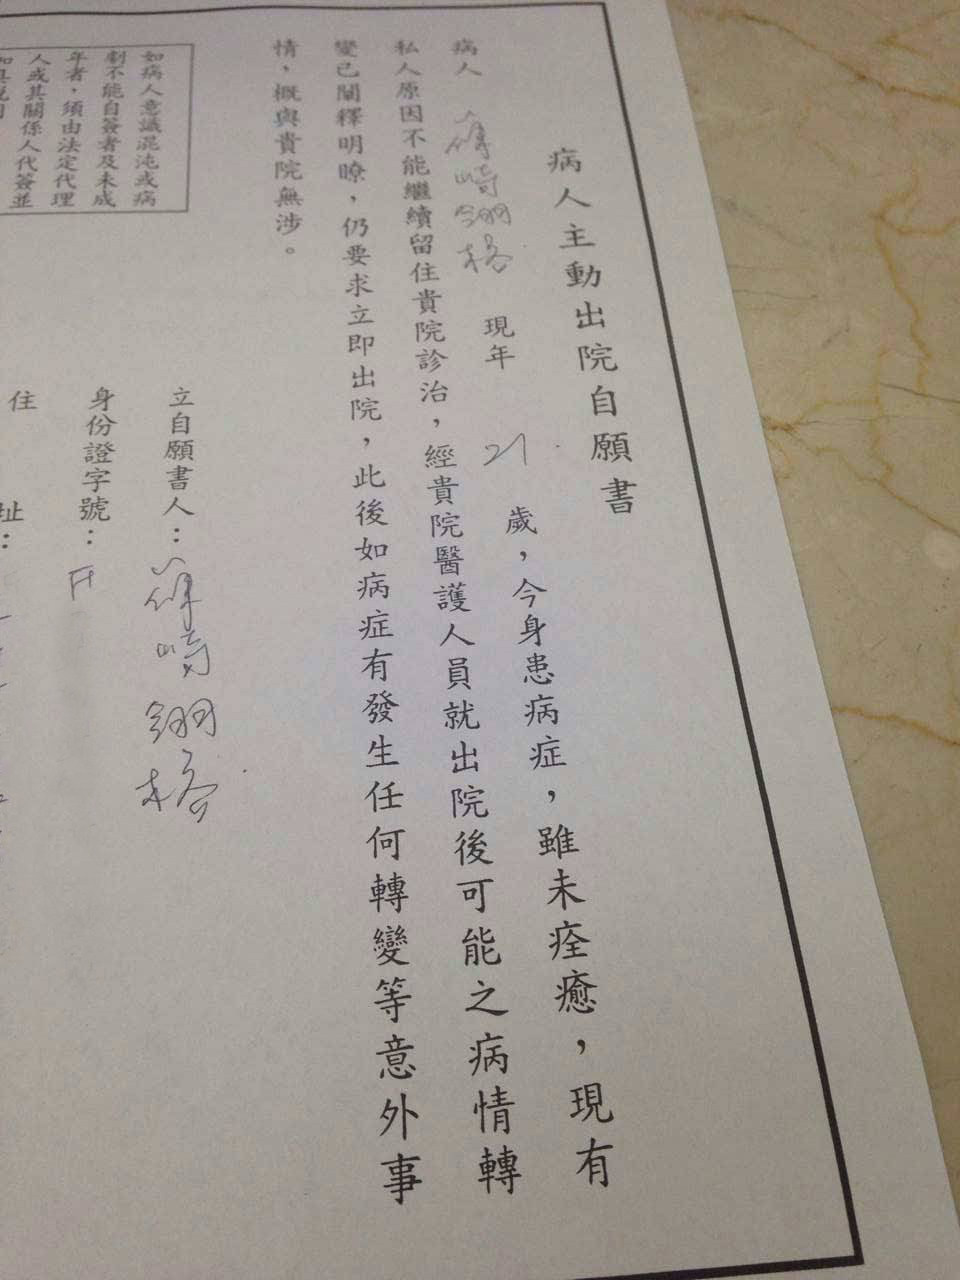 病人主動出院自願書
病人 篠崎翎格 現年 21 歲，今身患病症，雖未痊癒，現有
私人原因不能繼續留住貴院診治，經貴院醫護人員就出院後可能之病情轉
變已闡釋明瞭，仍要求立即出院，此後如病症有發生任何轉變等意外事
情，概與貴院無涉。
立自願書人：篠崎翎格
身份證字號：F1
住 址：
如病人意識混沌或病
劇不能自簽者及未成
年者，須由法定代理
人或其關係人代簽並